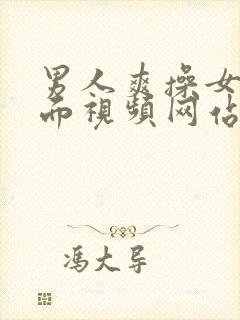 男人爽操女
而视频网站
冯大导